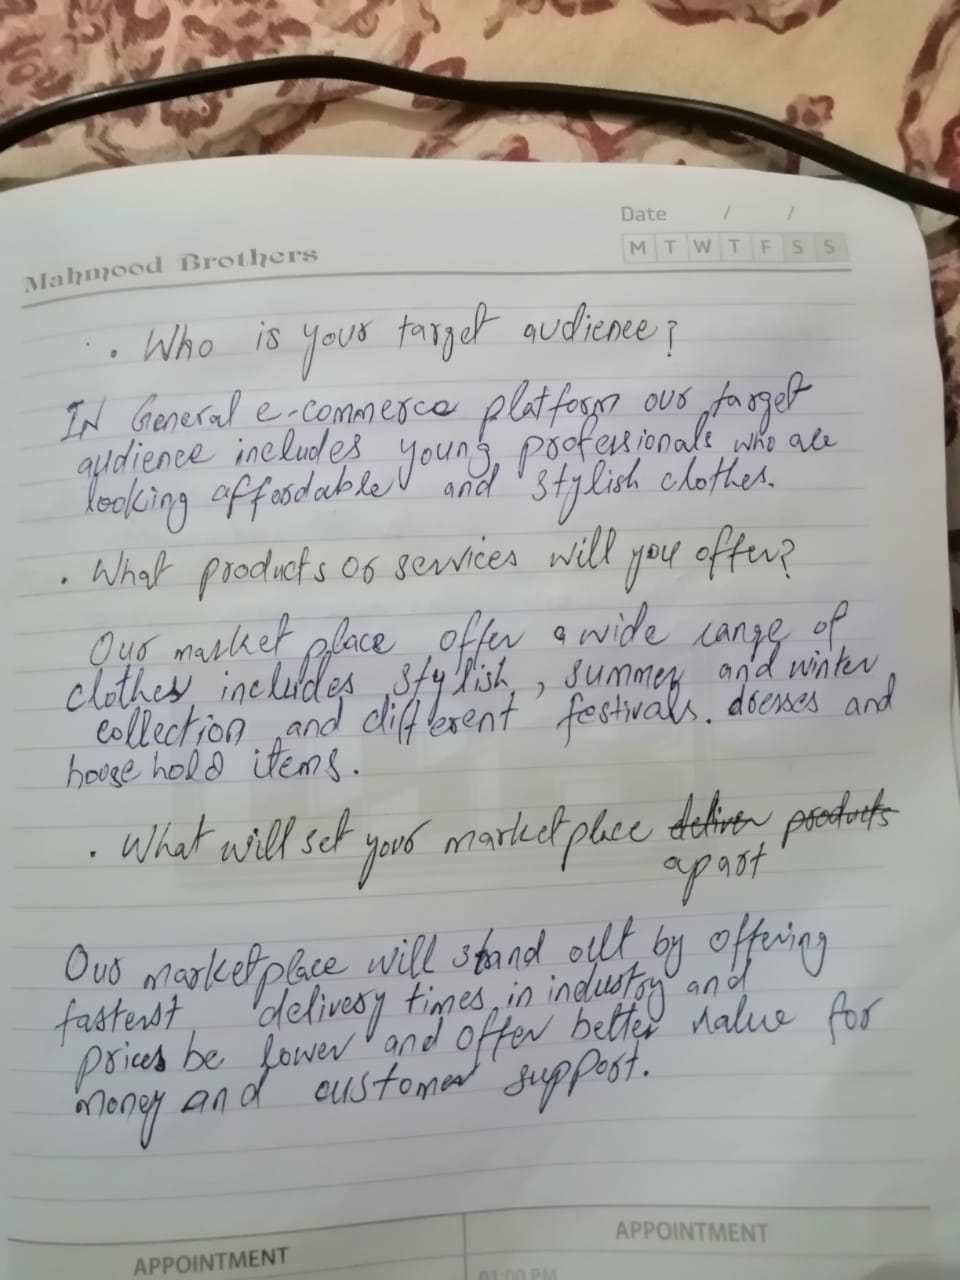 Mahmood Brothers
Date / /
M T W T F S S
. Who is your target audience?
IN General e-commerce platform our target
audience includes young professionals who are
looking affordable and stylish clothes.
. What products or services will you offer?
Our market place offer a wide range of
clothes includes stylish, summer and winter
collection and different festivals. dresses and
house hold items.
. What will set your marketplace deliver products
apart
Our marketplace will stand out by offering
fasterst delivery times in industry and
prices be lower and offer better value for
money and customer support.
APPOINTMENT
APPOINTMENT
01:00 PM